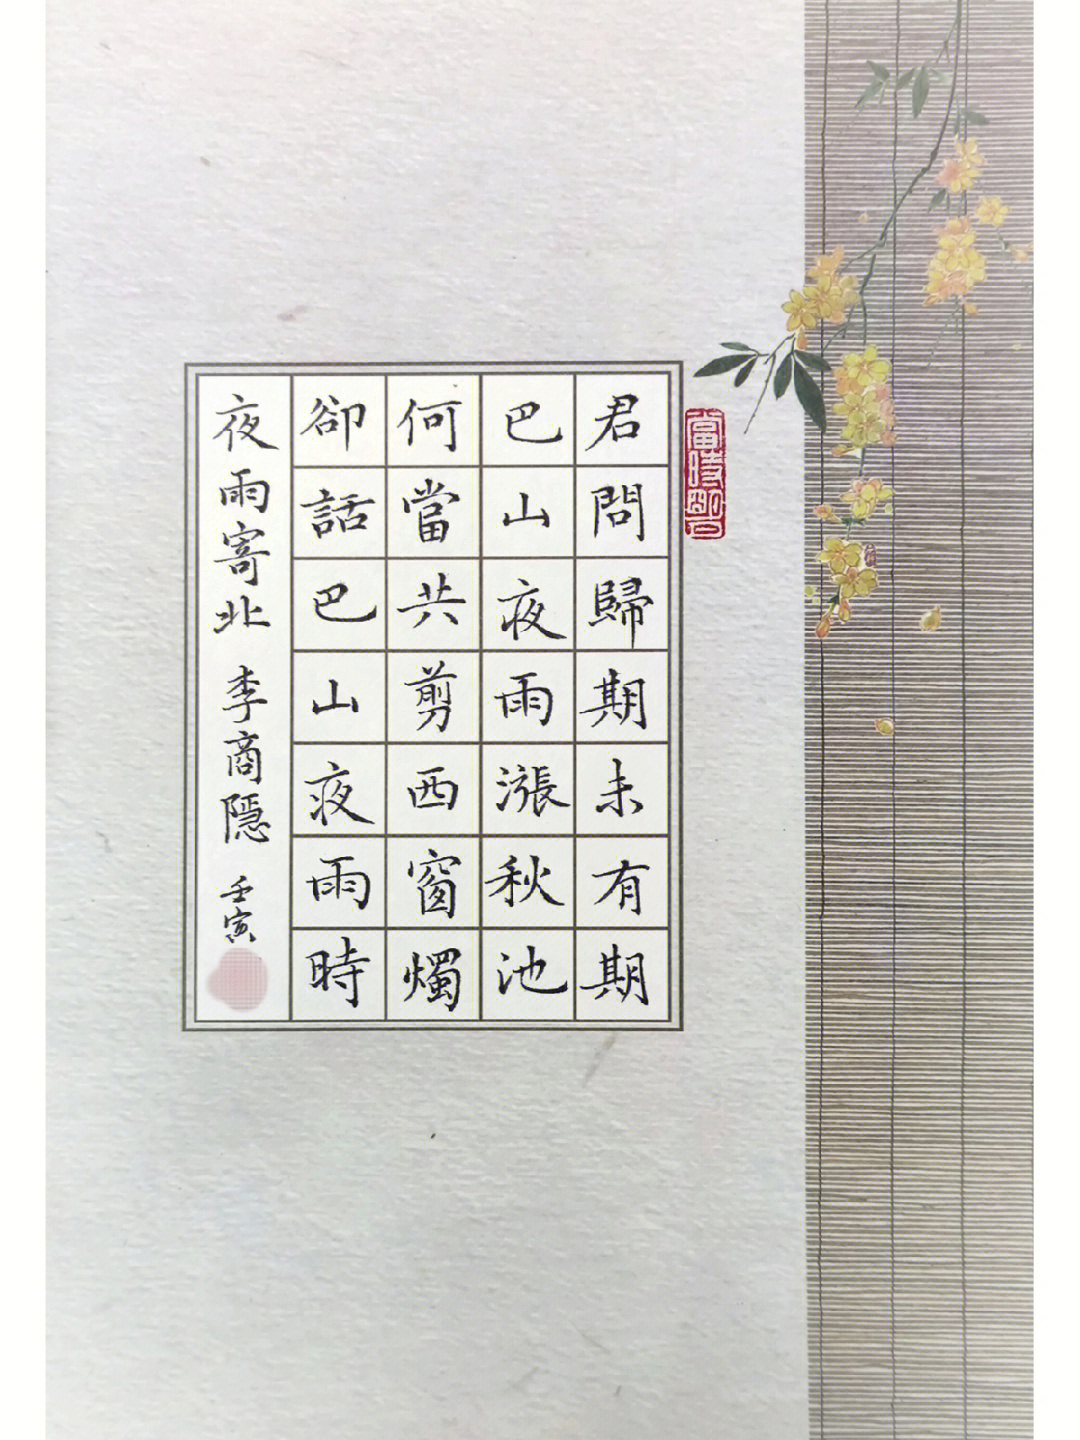 君問歸期未有期
巴山夜雨漲秋池
何當共剪西窗燭
卻話巴山夜雨時
夜雨寄北 李商隱 壬寅
當時明月